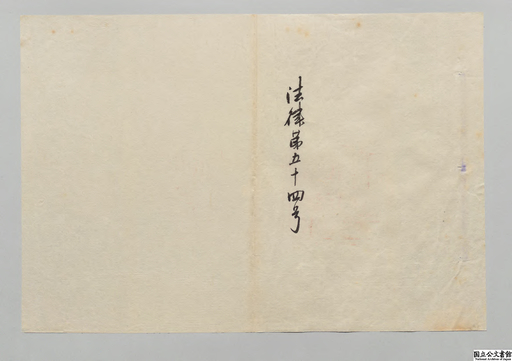 法律第五十四号
国立公文書館
National Archives of Japan